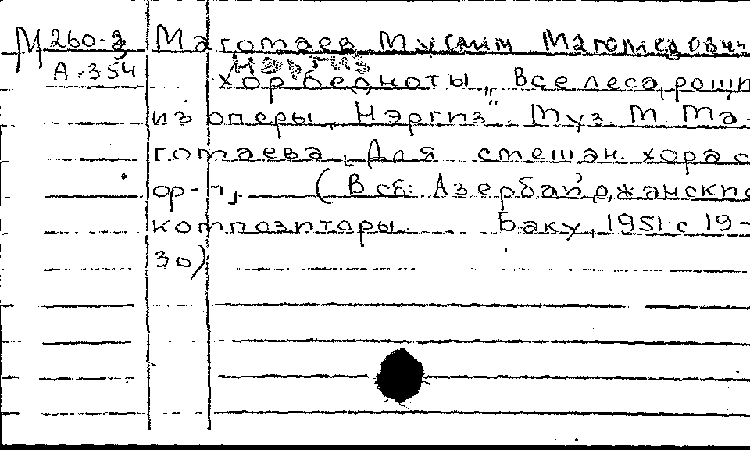 М 260-3 Магомаев Муслим Магомедович
Нэргиз
А-354 Хор бедноты „Все леса, рощи
из оперы „Нэргиз". Муз. М. Ма-
гомаева. Для смешан. хора с
ор-п. (В сб: Азербайджанские
композиторы. Баку, 1951 с 19-
30)